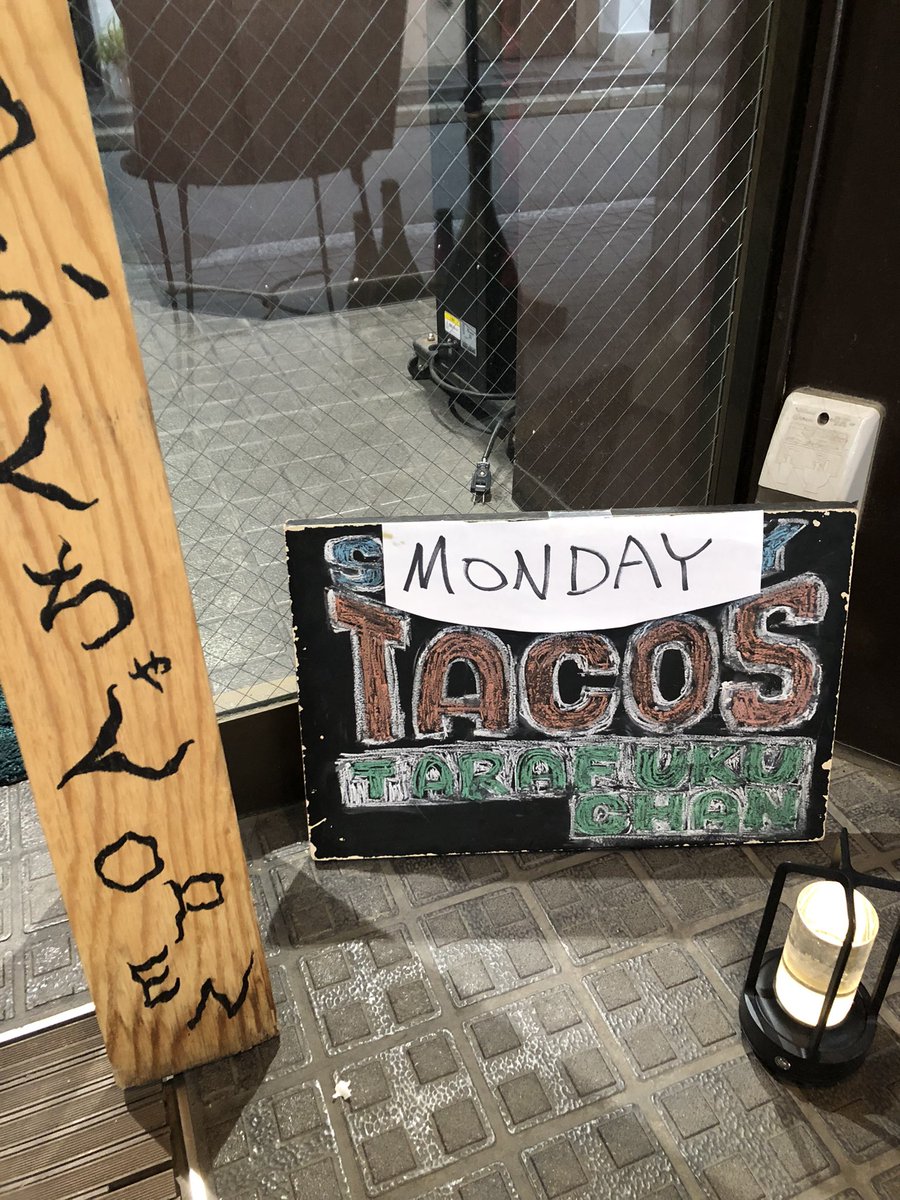 ふくちゃん
MONDAY
TACOS
TARAFUKU
CHAN